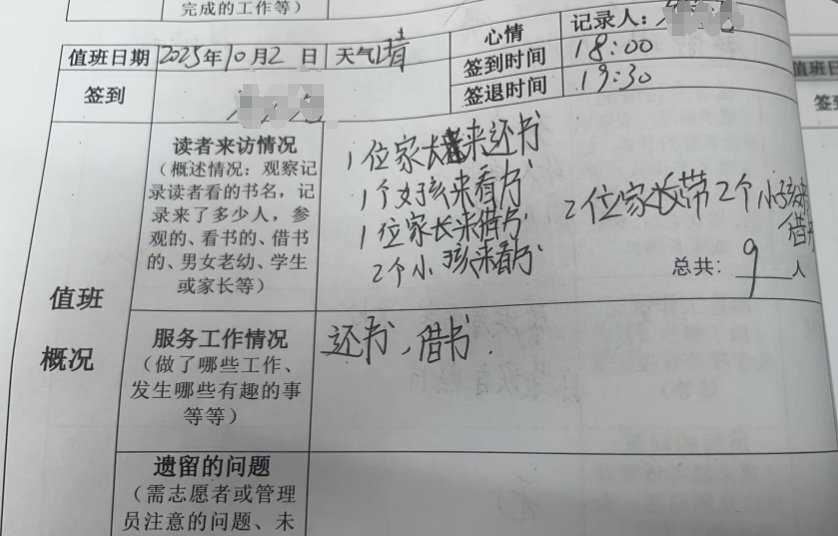 完成的工作等）
记录人：
值班日期 2025年10月2日 天气 晴 心情
签到时间 18:00
签到 签退时间 19:30
值班日
签到
读者来访情况
（概述情况：观察记
录读者看的书名，记
录来了多少人，参
观的、看书的、借书
的、男女老幼、学生
或家长等）
1位家长来还书
1个女孩来看书
1位家长来借书
2个小孩来看书
2位家长带2个小孩来
借书
总共：9人
值班
概况
服务工作情况
（做了哪些工作、
发生哪些有趣的事
等等）
还书，借书.
遗留的问题
（需志愿者或管理
员注意的问题、未